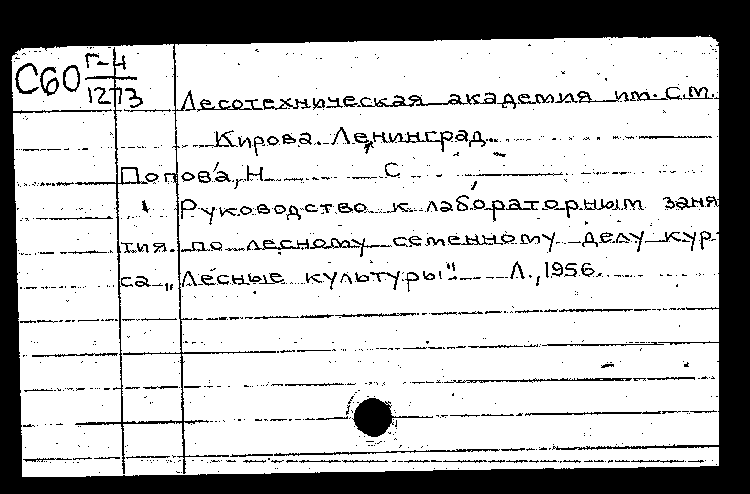 С60 Г-4
1273
Лесотехническая академия им. С.М.
Кирова. Ленинград.
Попова, Н С
Руководство к лабораторным заня
тия. по лесному семенному делу кур-
са „Лесные культуры". Л., 1956.